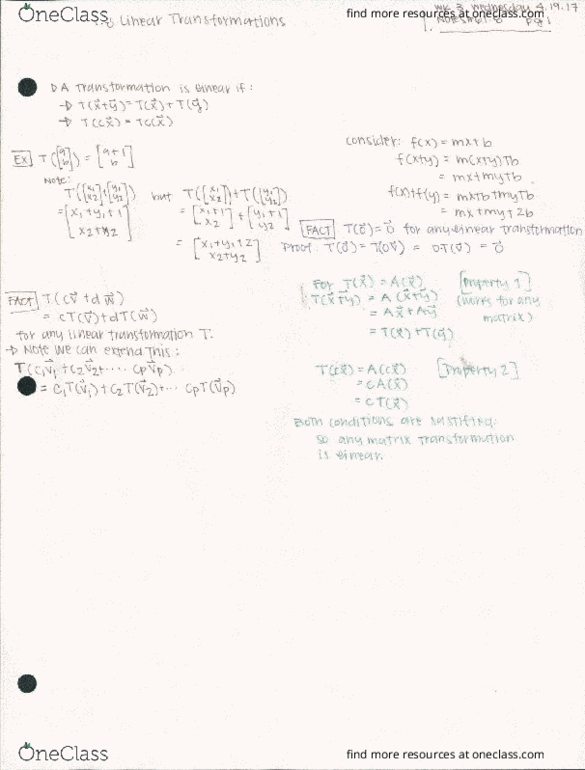 OneClass
find more resources at oneclass.com
Linear Transformations
Wk 3 Wednesday 4.19.17
pg 1
A Transformation is linear if:
→ T(x⃗+y⃗) = T(x⃗) + T(y⃗)
→ T(cx⃗) = Tc(x⃗)
EX T([a b]) = [a+1 b]
Note:
T([x₁ x₂]+[y₁ y₂]) but T([x₁ x₂])+T([y₁ y₂])
= [x₁+y₁+1 x₂+y₂] = [x₁+1 x₂] + [y₁+1 y₂]
= [x₁+y₁+2 x₂+y₂]
consider: f(x) = mx+b
f(x+y) = m(x+y)+b
= mx+my+b
f(x)+f(y) = mx+b+my+b
= mx+my+2b
FACT T(0⃗) = 0⃗ for any linear transformation
Proof: T(0⃗) = T(0v⃗) = 0·T(v⃗) = 0⃗
FACT T(cv⃗+dw⃗)
= cT(v⃗)+dT(w⃗)
for any linear transformation T.
→ Note we can extend this:
T(c₁v⃗₁+c₂v⃗₂+.... cpv⃗p)
= c₁T(v⃗₁)+c₂T(v⃗₂)+... cpT(v⃗p)
For T(x⃗) = A(x⃗) [Property 1]
T(x⃗+y⃗) = A(x⃗+y⃗) (works for any
= Ax⃗+Ay⃗ matrix)
= T(x⃗)+T(y⃗)
T(cx⃗) = A(cx⃗) [Property 2]
= cA(x⃗)
= cT(x⃗)
Both conditions are satisfied
so any matrix transformation
is linear.
OneClass
find more resources at oneclass.com